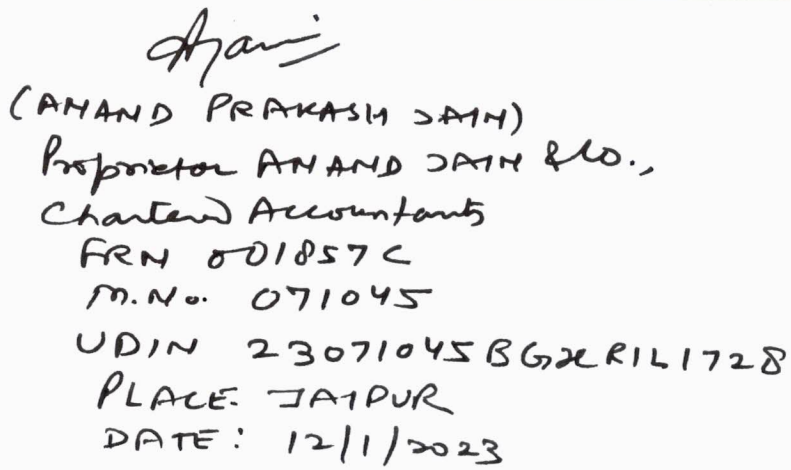 (ANAND PRAKASH JAIN)
Proprietor ANAND JAIN & Co.,
Chartered Accountants
FRN 001857C
M.No. 071045
UDIN 23071045BGXRIL1728
PLACE. JAIPUR
DATE: 12/1/2023